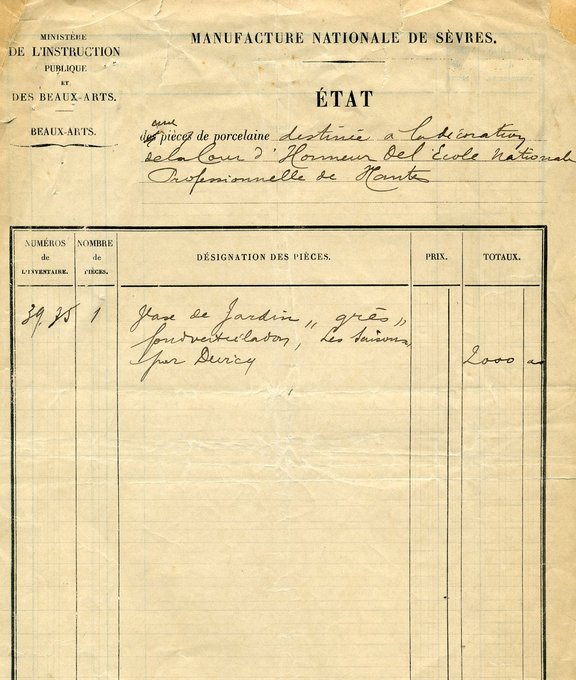 MINISTÈRE
DE L'INSTRUCTION
PUBLIQUE
ET
DES BEAUX-ARTS.
BEAUX-ARTS.
MANUFACTURE NATIONALE DE SÈVRES.
ÉTAT
une
des pièces de porcelaine destinée a la décoration
de la Cour d'Honneur Del Ecole Nationale
Professionnelle de Nantes
NUMÉROS de L'INVENTAIRE.
NOMBRE de PIÈCES.
DÉSIGNATION DES PIÈCES.
PRIX.
TOTAUX.
39.75 1 Vase de Jardin „ grès „
fond vert, Les Saisons
par Devicq 2000